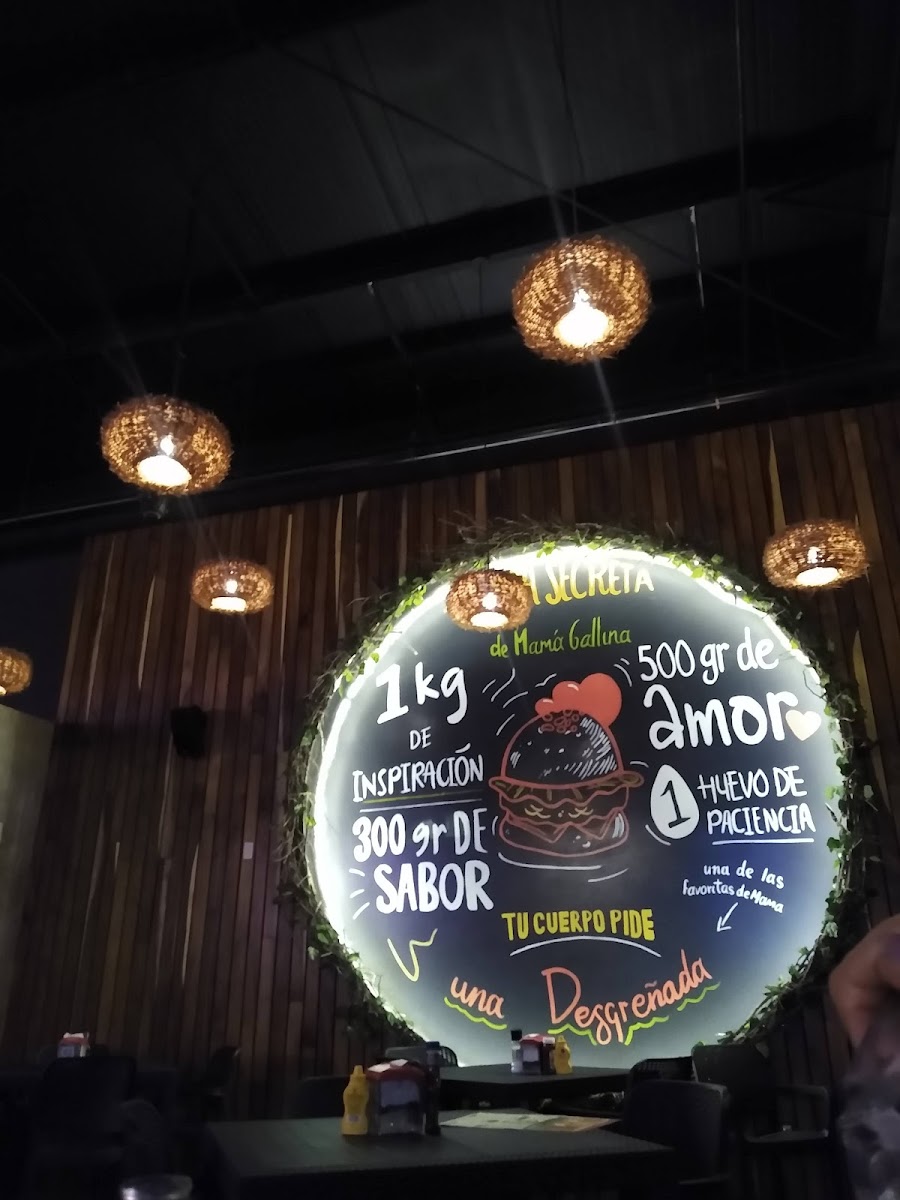 SECRETA
de Mamá Gallina
1 kg
DE
INSPIRACIÓN
300 gr DE
SABOR
500 gr de
amor
1 HUEVO DE
PACIENCIA
una de las
Favoritas de Mama
TU CUERPO PIDE
una Desgreñada